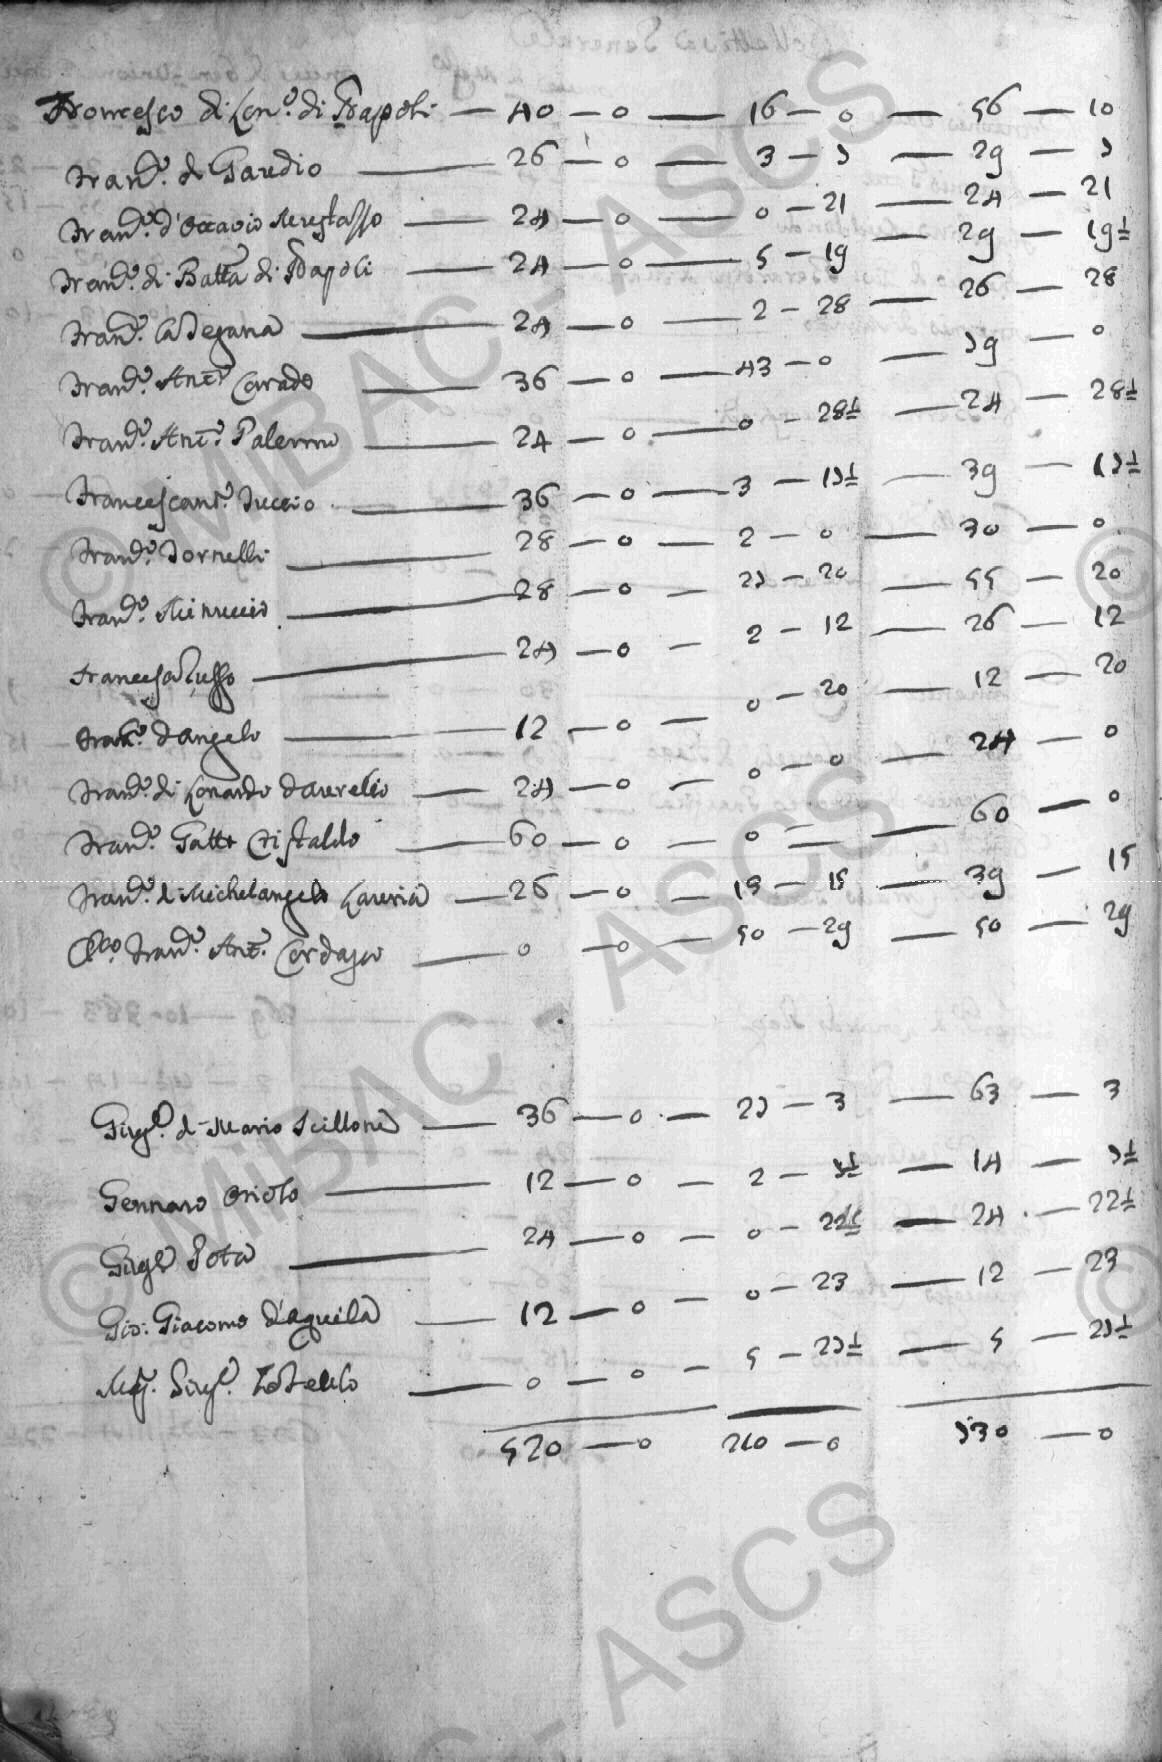 Francesco di Len.º di Napoli — 40 — 0 — 16 — 0 — 56 — 10
Fran.º di Gaudio — 26 — 0 — 3 — 9 — 29 — 9
Fran.º d'Ottavio — 24 — 0 — 0 — 21 — 24 — 21
Fran.º di Batta di Napoli — 24 — 0 — 5 — 19 — 29 — 19½
Fran.º — 24 — 0 — 2 — 28 — 26 — 28
Fran.º Ant.º Corrado — 36 — 0 — 43 — 0 — 79 — 0
Fran.º Ant.º Palermo — 24 — 0 — 0 — 28½ — 24 — 28½
Francescant.º Tuccio — 36 — 0 — 3 — 17½ — 39 — 17½
Fran.º Tornelli — 28 — 0 — 2 — 0 — 30 — 0
Fran.º Minuccio — 28 — 0 — 27 — 20 — 55 — 20
Francesco Russo — 24 — 0 — 2 — 12 — 26 — 12
Fran.º d'Angelo — 12 — 0 — 0 — 20 — 12 — 20
Fran.º di Lonardo d'Aurelio — 24 — 0 — 0 — 0 — 24 — 0
Fran.º Gatto Cristaldo — 60 — 0 — 0 — 60 — 0
Fran.º di Michelangelo Lauria — 26 — 0 — 13 — 15 — 39 — 15
Fran.º Ant.º Cordasco — 0 — 0 — 50 — 29 — 50 — 29
Gius.e di Mario Scillone — 36 — 0 — 27 — 3 — 63 — 3
Gennaro Oriolo — 12 — 0 — 2 — 7½ — 14 — 7½
Gius.e Sota — 24 — 0 — 0 — 22½ — 24 — 22½
Gio: Giacomo d'Aquila — 12 — 0 — 0 — 23 — 12 — 23
Gius.e — 0 — 0 — 5 — 27½ — 5 — 27½
520 — 0 210 — 0 730 — 0
© MiBAC - ASCS
© MiBAC - ASCS
©
©
C - ASCS